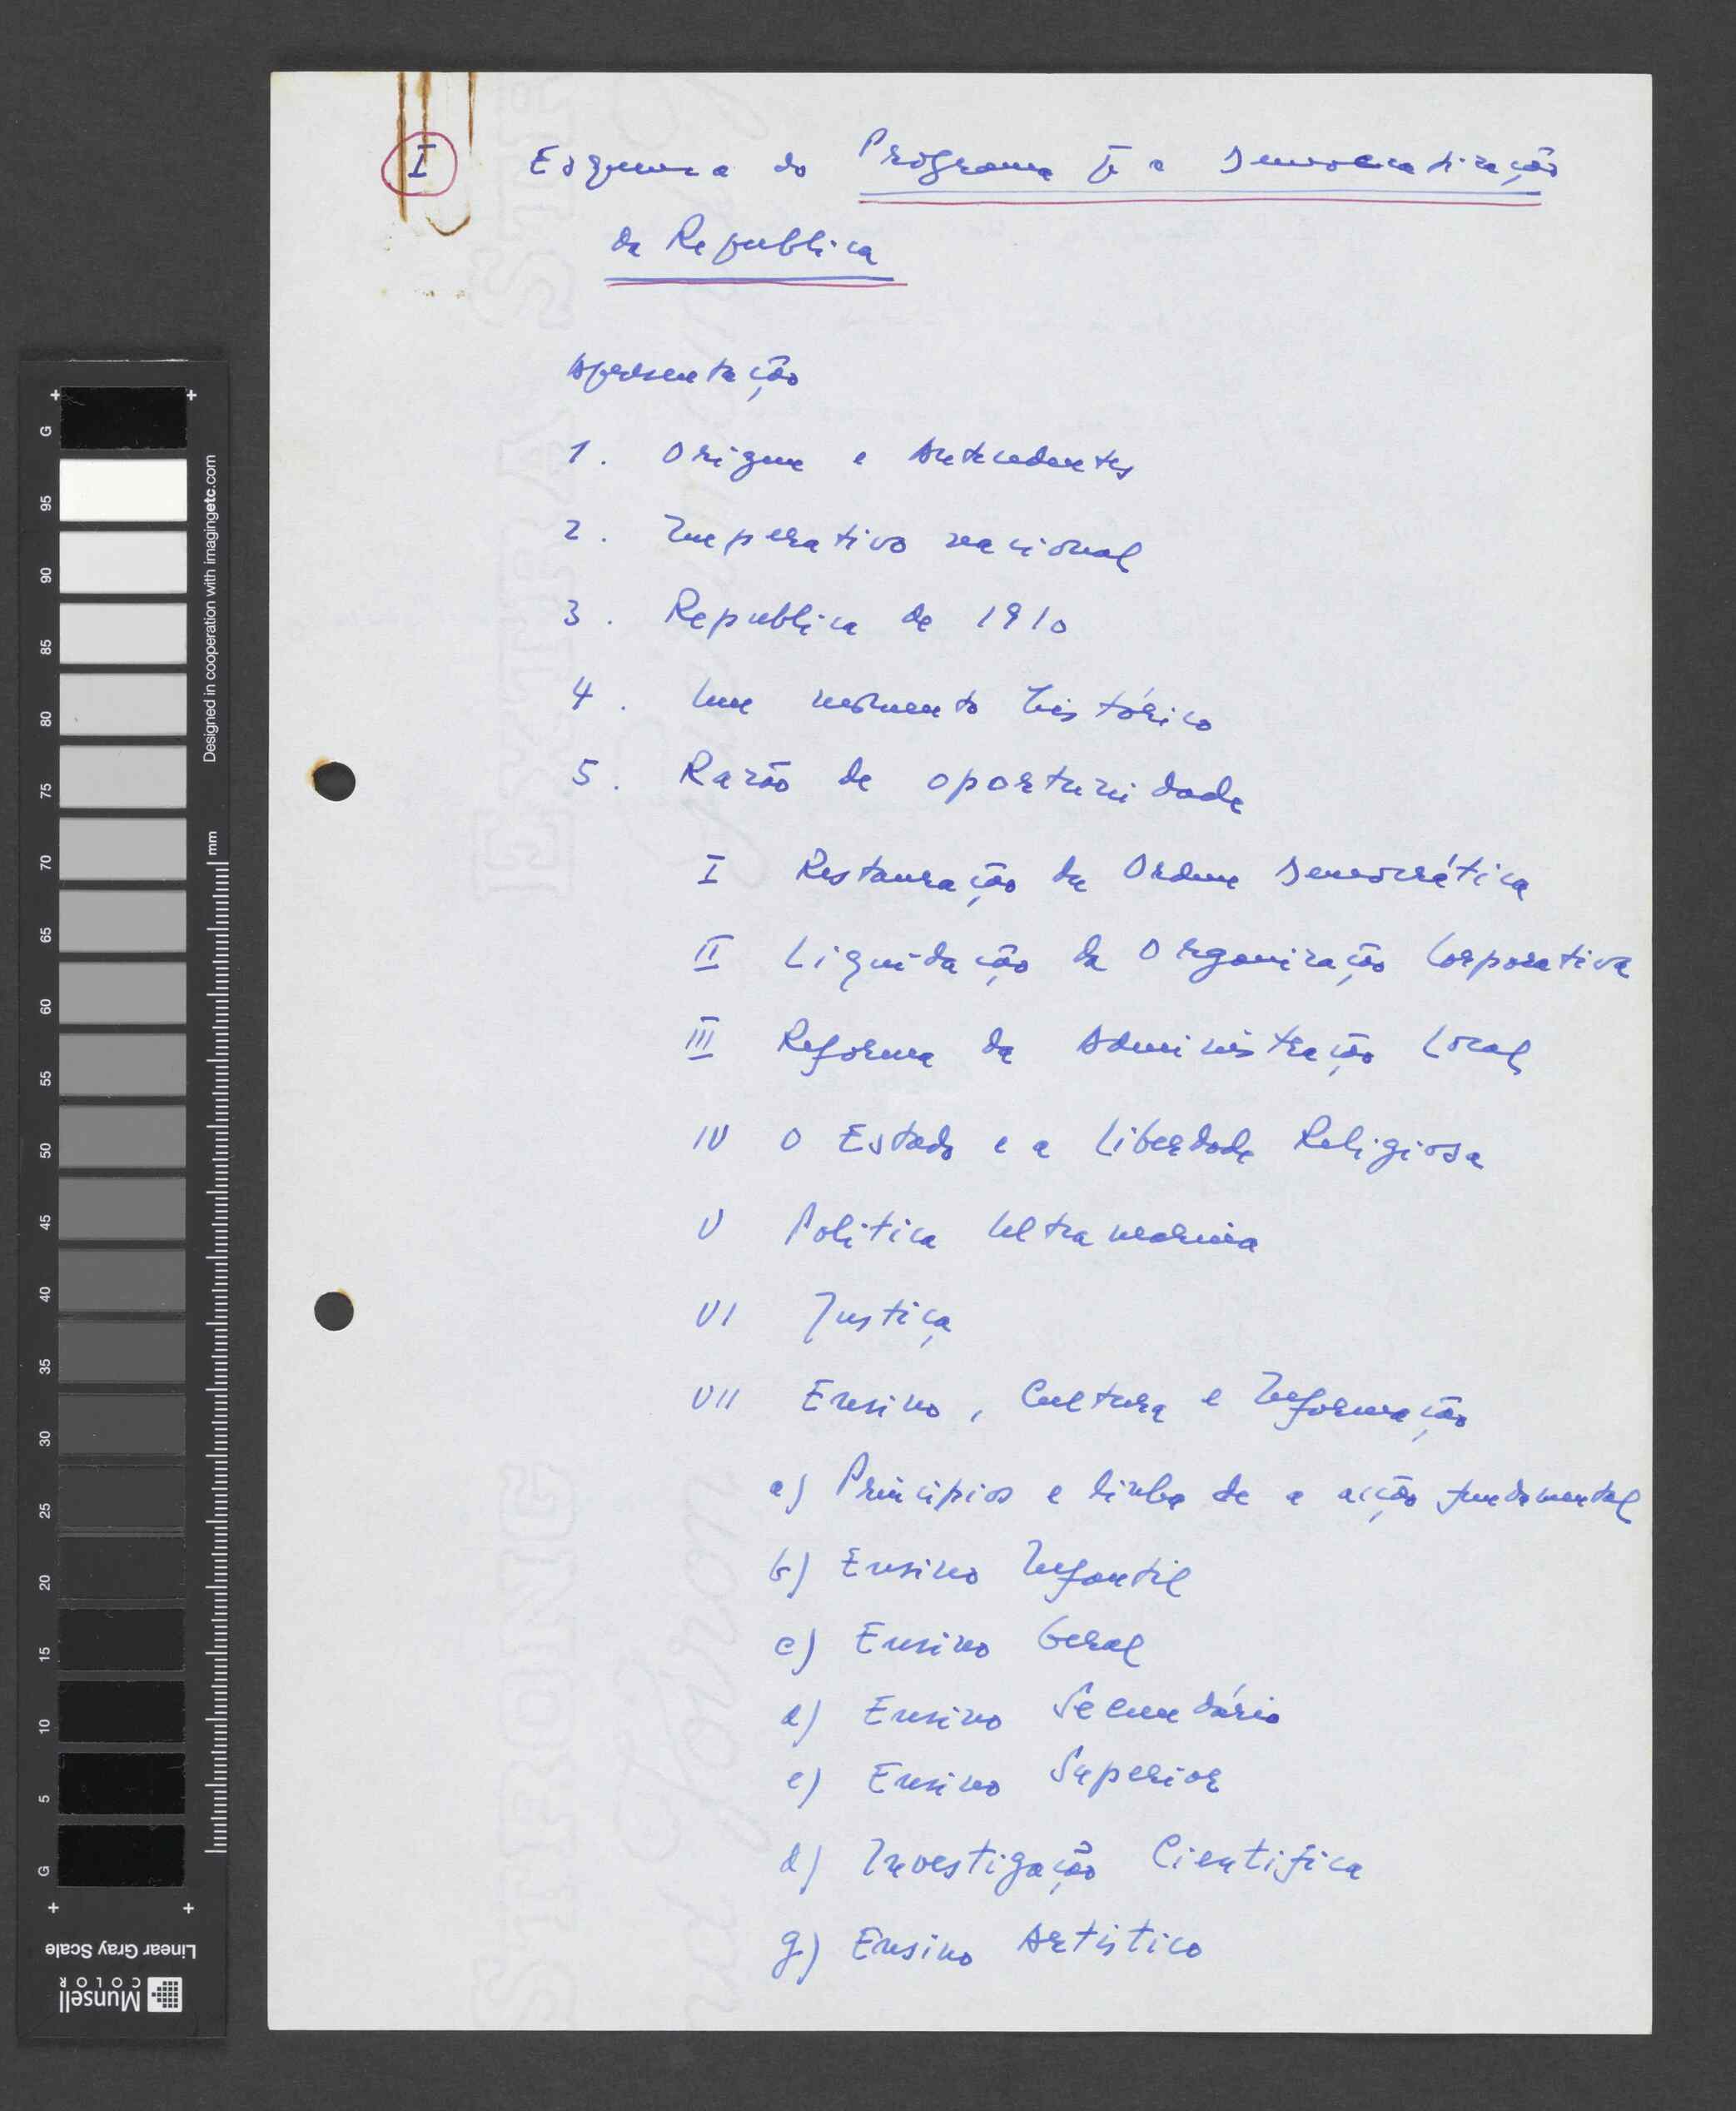 I Esquema do Programa p̄ a Democratização
da Republica
Apresentação
1. Origem e Antecedentes
2. Imperativo nacional
3. Republica de 1910
4. Um momento histórico
5. Razão de oportunidade
I Restauração da Ordem Democrática
II Liquidação da Organização Corporativa
III Reforma da Administração Local
IV O Estado e a Liberdade Religiosa
V Politica Ultramarina
VI Justiça
VII Ensino, Cultura e Informação
a) Principios e linha de a acção fundamental
b) Ensino Infantil
c) Ensino Geral
d) Ensino Secundário
e) Ensino Superior
d) Investigação Cientifica
g) Ensino Artistico
G 95 90 85 80 75 70 65 60 55 50 45 40 35 30 25 20 15 10 5 G
Designed in cooperation with imagingetc.com
mm
Linear Gray Scale
Munsell
COLOR